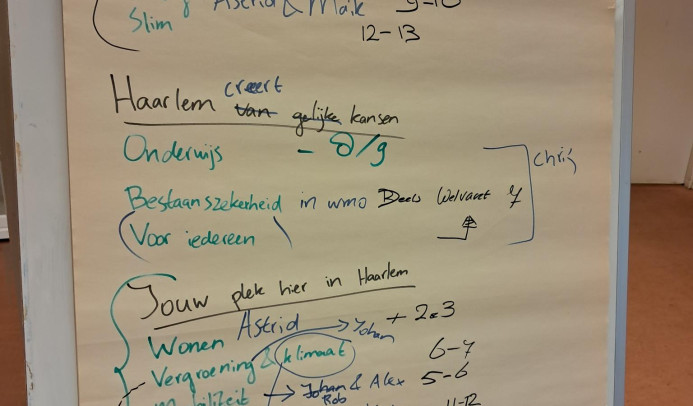 Astrid & Maik 9-10
Slim
12-13
creert
Haarlem van gelijke kansen
Onderwijs - D/g
Bestaanszekerheid in wmo Deels Welvaart
Voor iedereen
Chris
Jouw plek hier in Haarlem
Wonen Astrid → Johan + 2.3
Vergroening & klimaat 6-7
mobiliteit → Johan & Alex 5-6
Rob
11-12